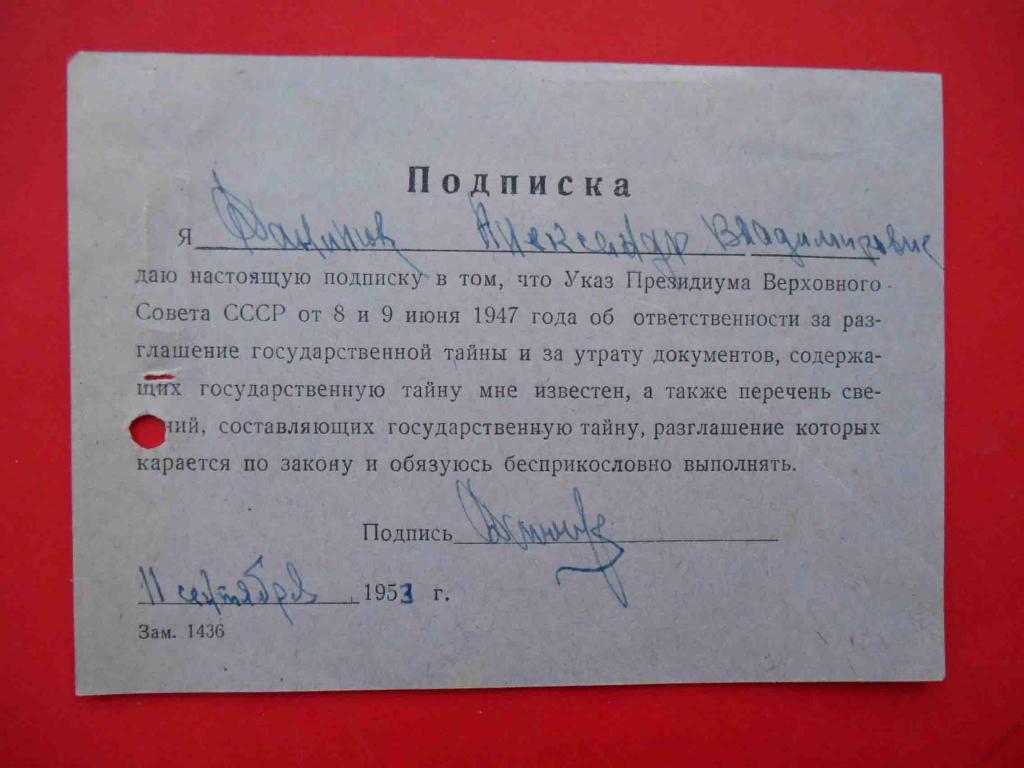 Подписка
Я Александр Владимирович
даю настоящую подписку в том, что Указ Президиума Верховного
Совета СССР от 8 и 9 июня 1947 года об ответственности за раз-
глашение государственной тайны и за утрату документов, содержа-
щих государственную тайну мне известен, а также перечень све-
ний, составляющих государственную тайну, разглашение которых
карается по закону и обязуюсь бесприкословно выполнять.
Подпись
11 сентября 1953 г.
Зам. 1436